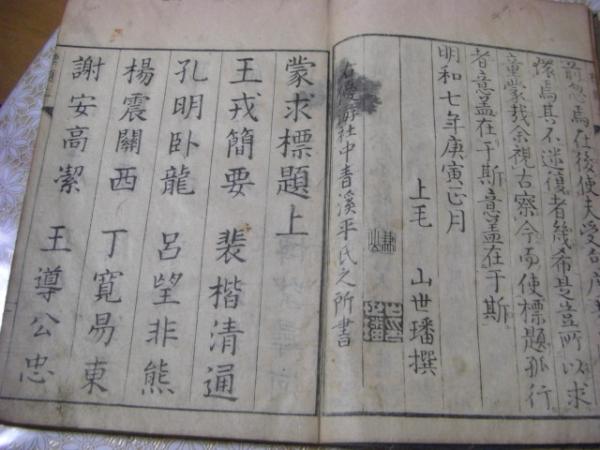 前忽焉在後使夫受
環焉其不迷復者幾希是豈所以求
童蒙哉余視古察今而使標題孤行
者意蓋在于斯意蓋在于斯
明和七年庚寅正月
上毛　山世璠撰
右應社中青溪平氏之所書
蒙求標題上
王戎簡要　裴楷清通
孔明卧龍　呂望非熊
楊震關西　丁寬易東
謝安高潔　王導公忠